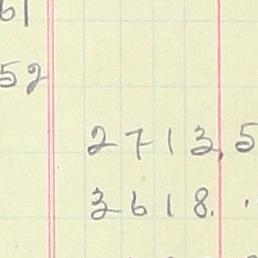 61
52
2713,5
3618.